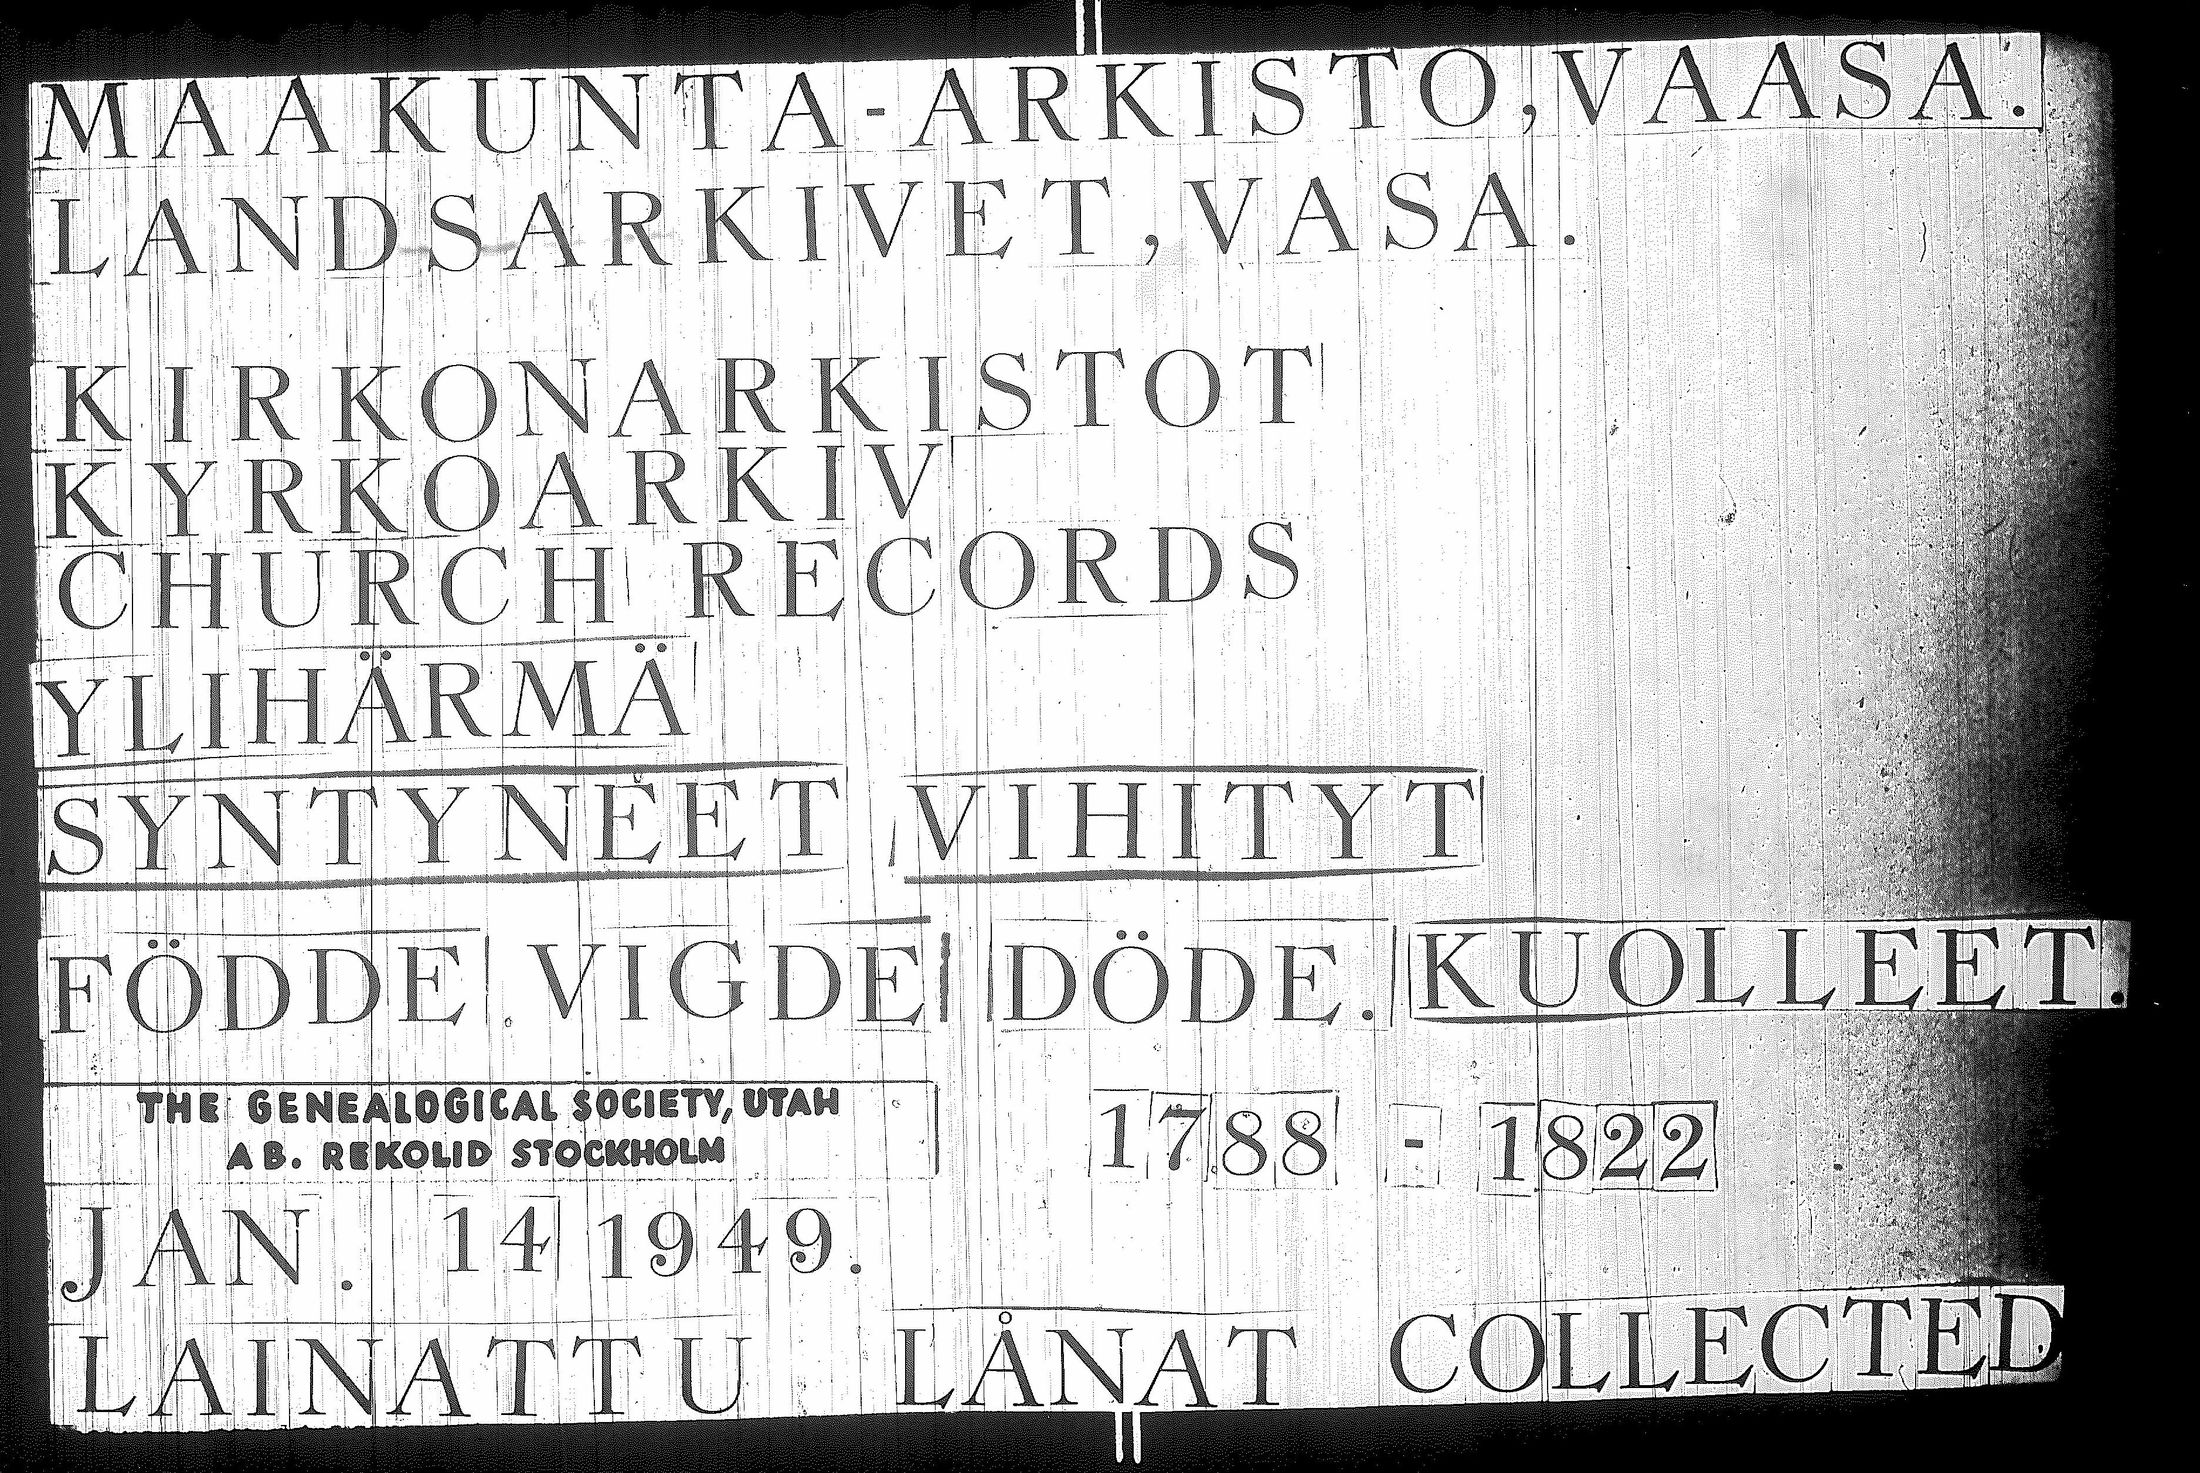 MAAKUNTA-ARKISTO, VAASA.
LANDSARKIVET, VASA.
KIRKONARKISTOT
KYRKOARKIV
CHURCH RECORDS
YLIHÄRMÄ
SYNTYNEET VIHITYT
FÖDDE VIGDE DÖDE. KUOLLEET.
THE GENEALOGICAL SOCIETY, UTAH
AB. REKOLID STOCKHOLM
1788 - 1822
JAN. 14 1949.
LAINATTU LÅNAT COLLECTED